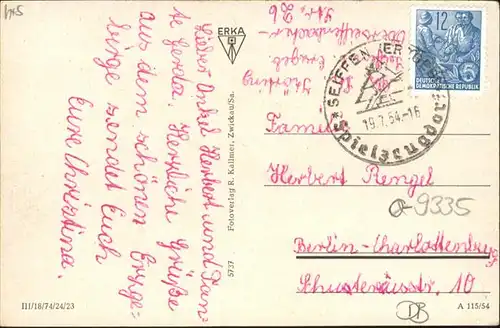 Lieber Onkel Herbert und Tan-
te Gerda. Herzliche Grüße
aus dem schönen Erzge-
birge sendet Euch
Eure Christina.
ERKA
Fotoverlag R. Kallmer, Zwickau/Sa.
5737
III/18/74/24/23
12
DEUTSCHE
DEMOKRATISCHE REPUBLIK
SEIFFEN (ERZGEB
19.7.54-16
Spielzeugdorf
Familie
Herbert Rengel
9335
Berlin-Charlottenburg
10
A 115/54